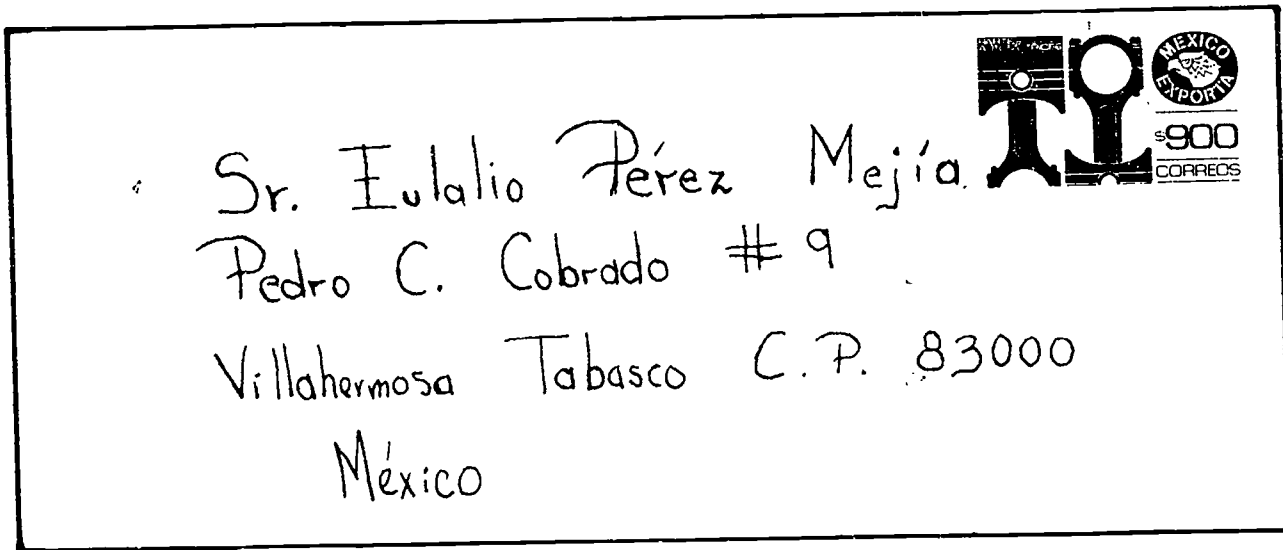 MEXICO
EXPORTA
$900
CORREOS
Sr. Eulalio Pérez Mejía
Pedro C. Cobrado # 9
Villahermosa Tabasco C.P. 83000
México